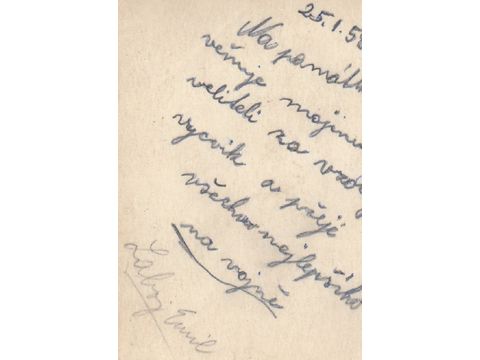 25.1.5
Na památk
věnuje mojimu
veliteli za vzor
výcvik a přeje
všechno nejlepšího
na vojně
Emil